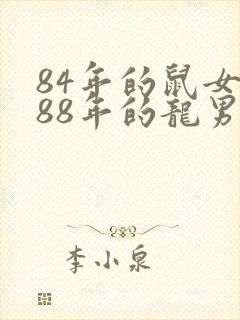 84年的鼠女
88年的龍男
李小泉